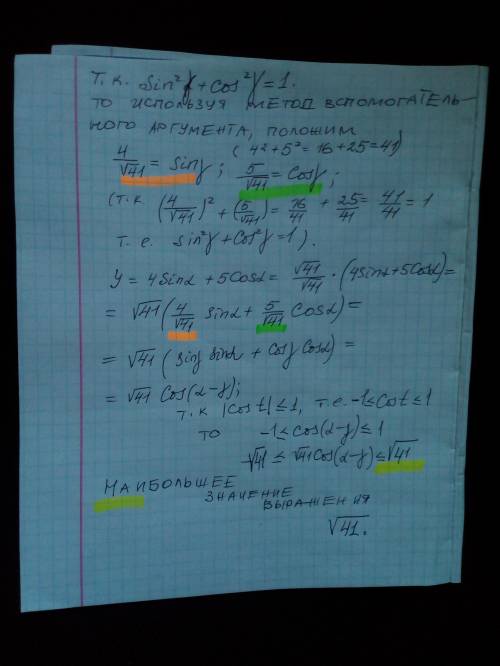 Т.К. sin²γ + cos²γ = 1.
ТО ИСПОЛЬЗУЯ МЕТОД ВСПОМОГАТЕЛЬ-
НОГО АРГУМЕНТА, ПОЛОЖИМ
(4² + 5² = 16 + 25 = 41)
4/√41 = sinγ ; 5/√41 = cosγ ;
(Т.К (4/√41)² + (5/√41)² = 16/41 + 25/41 = 41/41 = 1
Т.е. sin²γ + cos²γ = 1).
y = 4sinα + 5cosα = √41/√41 · (4sinα + 5cosα) =
= √41 (4/√41 sinα + 5/√41 cosα) =
= √41 (sinγ sinα + cosγ cosα) =
= √41 cos(α-γ);
Т.К |cost| ≤ 1, т.е. -1 ≤ cost ≤ 1
ТО -1 ≤ cos(α-γ) ≤ 1
-√41 ≤ √41 cos(α-γ) ≤ √41
НАИБОЛЬШЕЕ
ЗНАЧЕНИЕ
ВЫРАЖЕНИЯ
√41.